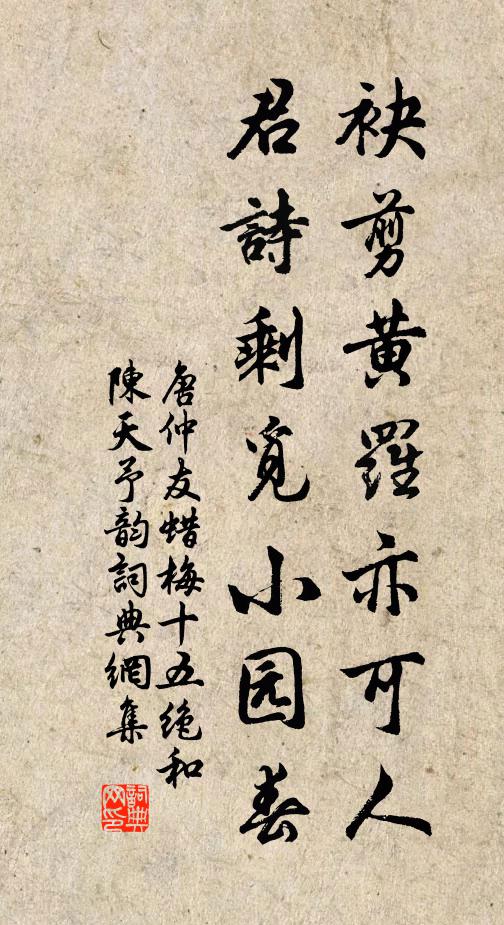 袂剪黄羅亦可人
君詩剩覓小园春
唐仲友蜡梅十五绝和
陳天予韵詞典網集
詞典
网印